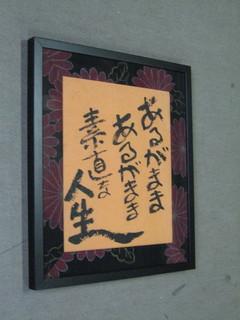 あるがまま
あるがまま
素直な
人生